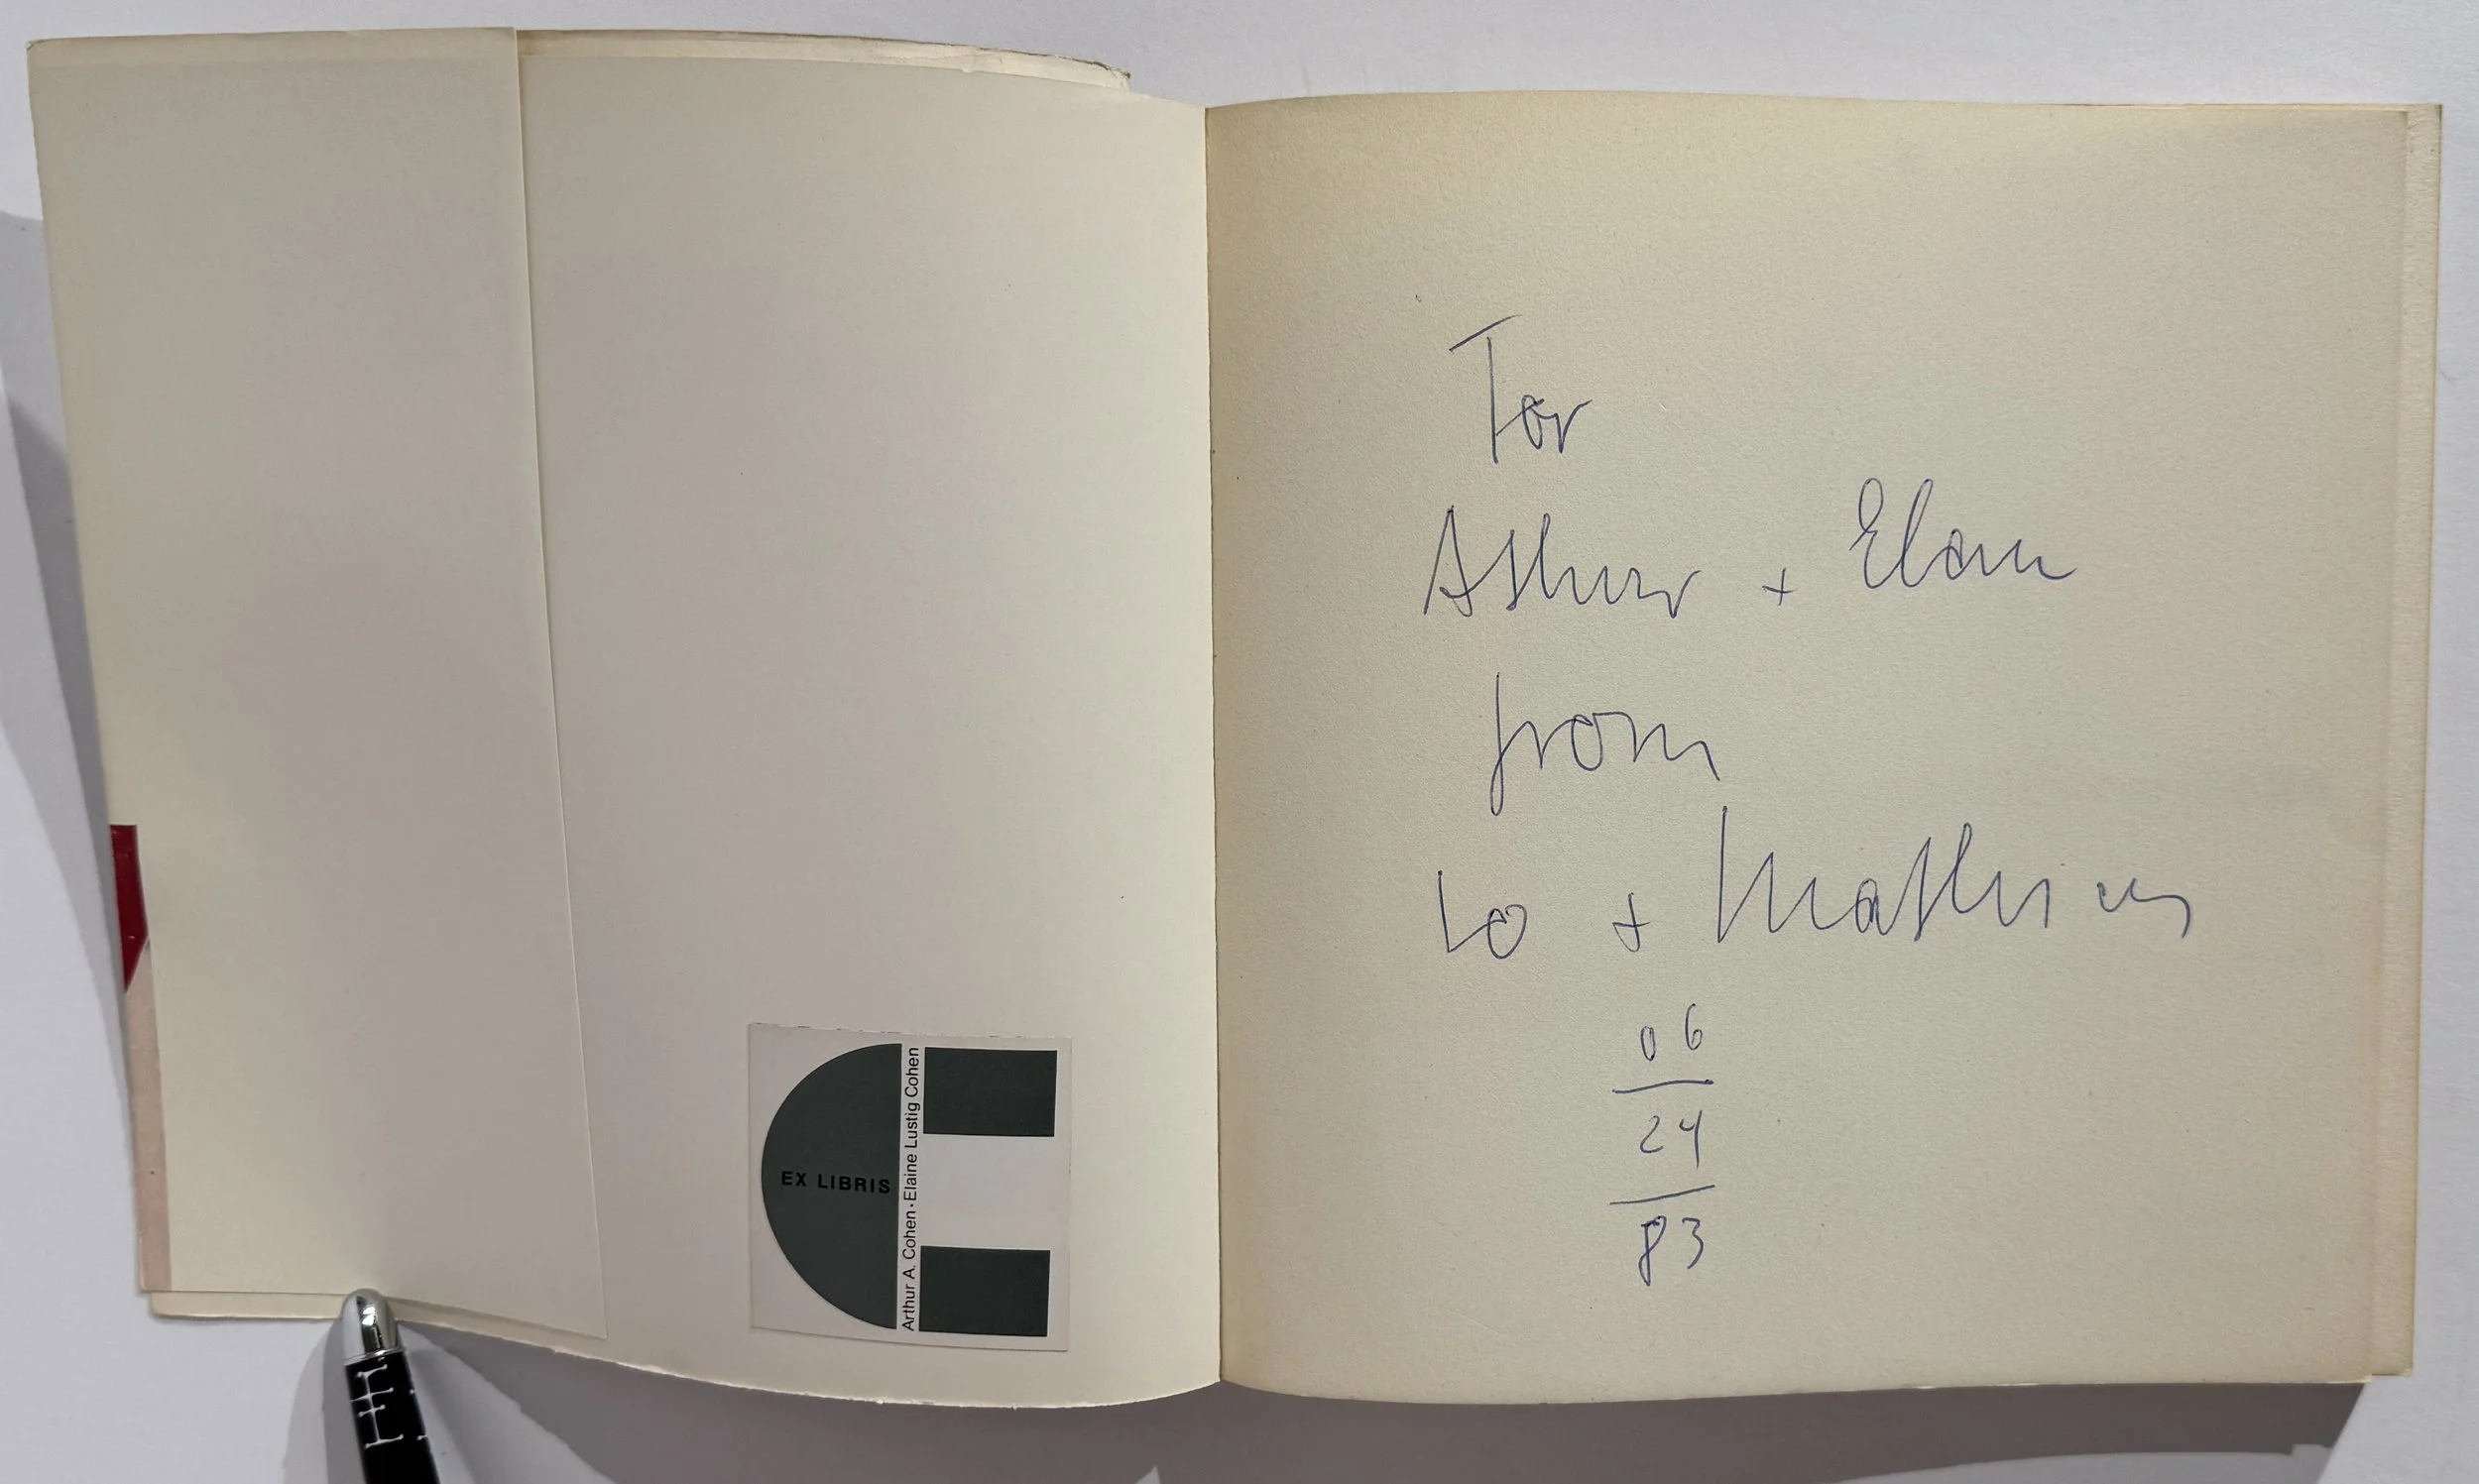 EX LIBRIS
Arthur A. Cohen · Elaine Lustig Cohen
For
Arthur + Elaine
from
Lo + Mathieu
06
24
83